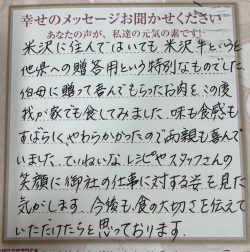 幸せのメッセージお聞かせください
あなたの声が、私達の元気の素です!
米沢に住んではいても米沢牛というと
他県への贈答用という特別なものでした
伯母に贈って喜んでもらったお肉を この後
我が家でも食してみました。味も食感も
すばらしくやわらかかったので両親も喜んで
いました。ていねいなレシピやスタッフさんの
笑顔に御社の仕事に対する姿も見た
気がします。今後も食の大切さを伝えて
いただけたらと思っております。